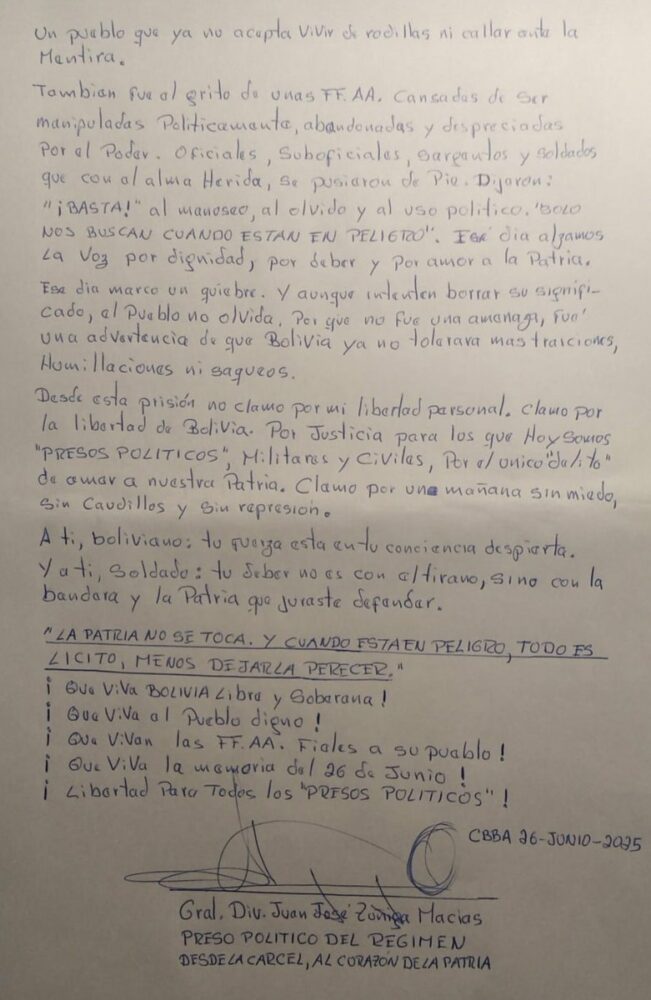 Un pueblo que ya no acepta vivir de rodillas ni callar ante la
Mentira.
Tambien fue el grito de unas FF.AA. Cansadas de ser
manipuladas Politicamente, abandonadas y despreciadas
Por el Poder. Oficiales, Suboficiales, sargentos y soldados
que con el alma Herida, se pusieron de Pie. Dijeron:
"¡BASTA!" al manoseo, al olvido y al uso politico. "SOLO
NOS BUSCAN CUANDO ESTAN EN PELIGRO". Ese dia alzamos
La Voz por dignidad, por deber y por amor a la Patria.
Ese dia marco un quiebre. Y aunque intenten borrar su signifi-
cado, el Pueblo no olvida. Por que no fue una amenaza, fue'
una advertencia de que Bolivia ya no tolerava mas traiciones,
Humillaciones ni saqueos.
Desde esta prisión no clamo por mi libertad personal. Clamo por
la libertad de Bolivia. Por Justicia para los que Hoy somos
"PRESOS POLITICOS", Militares y Civiles, Por el unico "delito"
de amar a nuestra Patria. Clamo por una mañana sin miedo,
sin Caudillos y sin represión.
A ti, boliviano: tu fuerza esta en tu conciencia despierta.
Y a ti, Soldado: tu deber no es con el tirano, sino con la
bandera y la Patria que juraste defender.
"LA PATRIA NO SE TOCA. Y CUANDO ESTA EN PELIGRO, TODO ES
LICITO, MENOS DEJARLA PERECER."
¡ Que Viva BOLIVIA Libre y Soberana !
¡ Que Viva el Pueblo digno !
¡ Que Vivan las FF.AA. Fieles a su pueblo !
¡ Que Viva la memoria del 26 de Junio !
¡ Libertad Para Todos los "PRESOS POLITICOS" !
CBBA 26-JUNIO-2025
Gral. Div. Juan José Zúñiga Macias
PRESO POLITICO DEL REGIMEN
DESDE LA CARCEL, AL CORAZÓN DE LA PATRIA